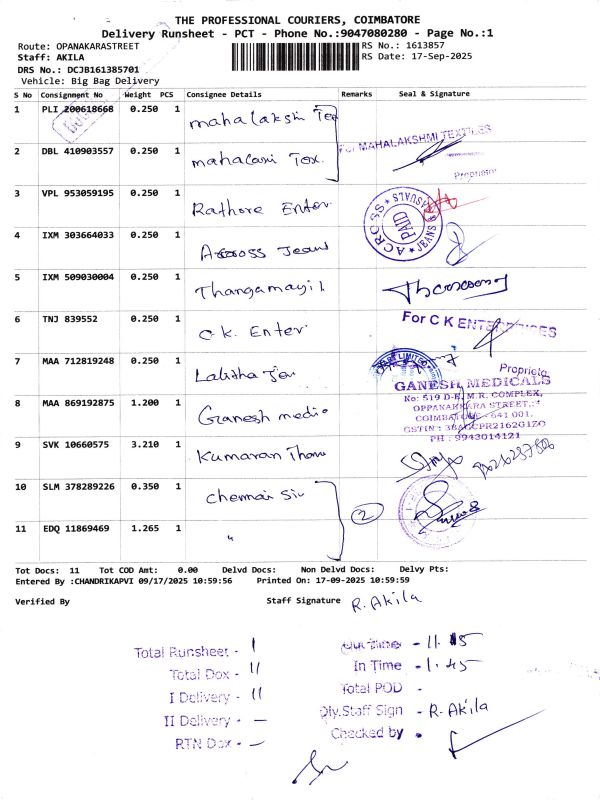 THE PROFESSIONAL COURIERS, COIMBATORE
Delivery Runsheet - PCT - Phone No.:9047080280 - Page No.:1
Route: OPANAKARASTREET RS No.: 1613857
Staff: AKILA RS Date: 17-Sep-2025
DRS No.: DCJB161385701
Vehicle: Big Bag Delivery
S No Consignment No Weight PCS Consignee Details Remarks Seal & Signature
1 PLI 200618668 0.250 1 mahalakshi Tex
For MAHALAKSHMI TEXTILES
2 DBL 410903557 0.250 1 mahalaxi Tex.
Proprietor
3 VPL 953059195 0.250 1 Rathore Enter
ACROSS JEANS & CASUALS PAID
4 IXM 303664033 0.250 1 Across Jeans
5 IXM 509030004 0.250 1 Thangamayil
6 TNJ 839552 0.250 1 C.K. Enter
For C K ENTERPRISES
Proprietor
7 MAA 712819248 0.250 1 Lalitha Jew
8 MAA 869192875 1.200 1 Ganesh medic
GANESH MEDICALS
No: 519 D-E, M.R. COMPLEX,
OPPANAKKARA STREET,
COIMBATORE - 641 001.
GSTIN : 33AGCPR2162G1ZO
PH : 9943014121
9 SVK 10660575 3.210 1 Kumaran Thanu
10 SLM 378289226 0.350 1 Chennai Sil
2
11 EDQ 11869469 1.265 1 "
Tot Docs: 11 Tot COD Amt: 0.00 Delvd Docs: Non Delvd Docs: Delvy Pts:
Entered By :CHANDRIKAPVI 09/17/2025 10:59:56 Printed On: 17-09-2025 10:59:59
Verified By Staff Signature R. Akila
Total Runsheet - 1 Out Time - 11.15
Total Dox - 11 In Time - 1.45
I Delivery - 11 Total POD -
II Delivery - — Dly.Staff Sign - R. Akila
RTN Dox - — Checked by